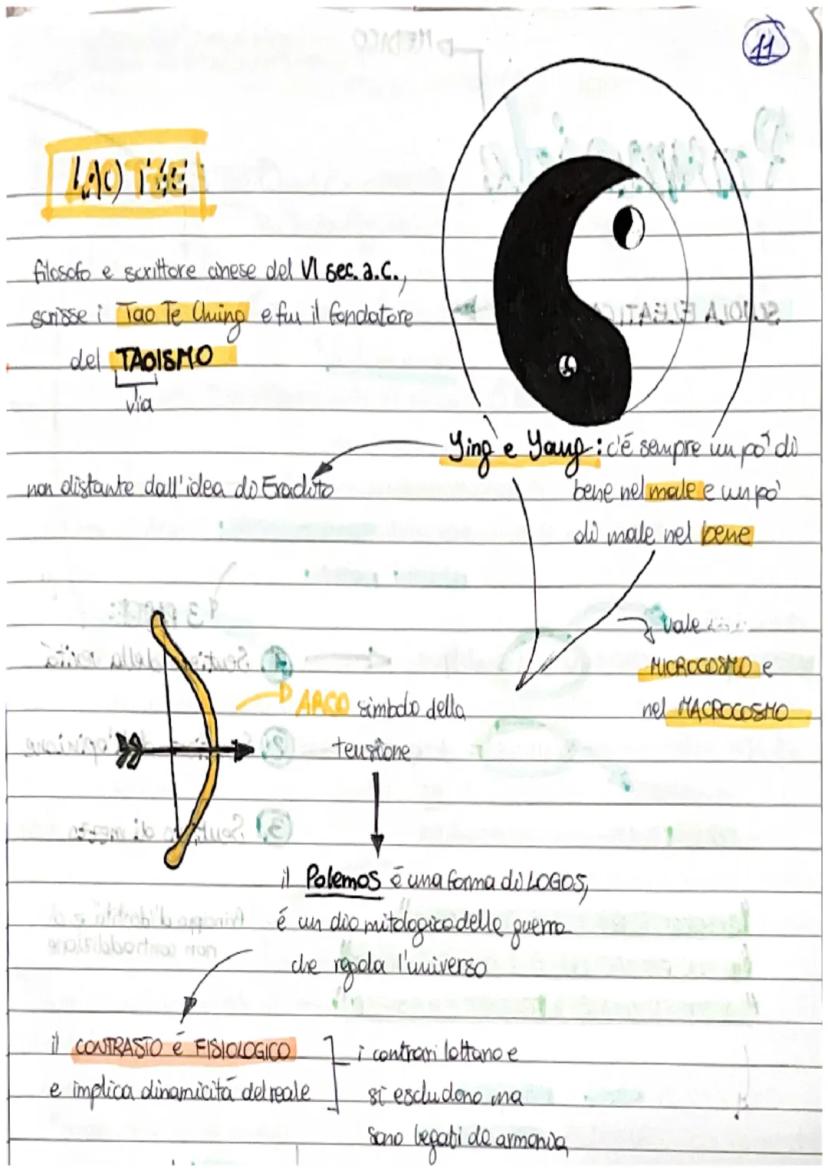 11
LAO TÉE
filosofo e scrittore cinese del VI sec. a.C.,
scrisse i Tao Te Ching e fu il fondatore
del TAOISMO
via
Ying e Yang: c'é sempre un po' di
bene nel male e un po'
di male nel bene
non distante dall'idea di Eraclito
vale
MICROCOSMO e
nel MACROCOSMO
ARCO simbolo della
tensione
il Polemos é una forma di LOGOS,
é un dio mitologico delle guerra
che regola l'universo
il CONTRASTO é FISIOLOGICO
e implica dinamicitá del reale
i contrari lottano e
si escludono ma
sono legati da armonia